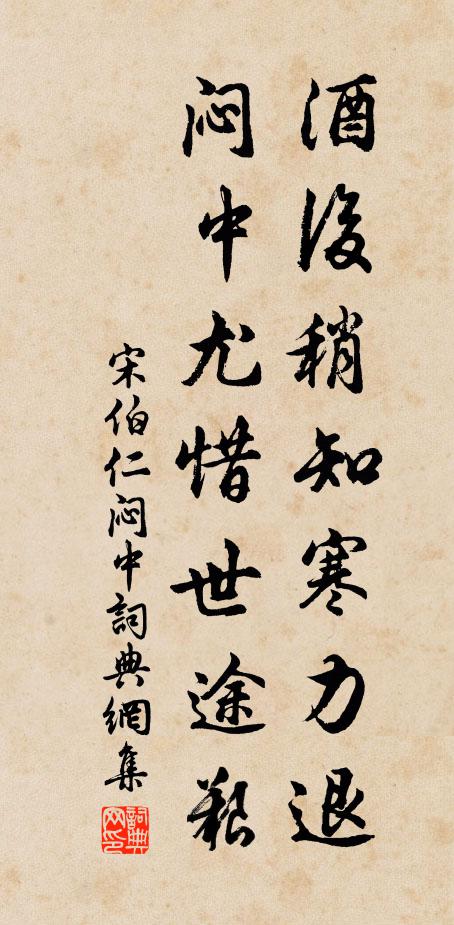 酒後稍知寒力退
闷中尤惜世途艱
宋伯仁闷中詞典網集
詞典网印